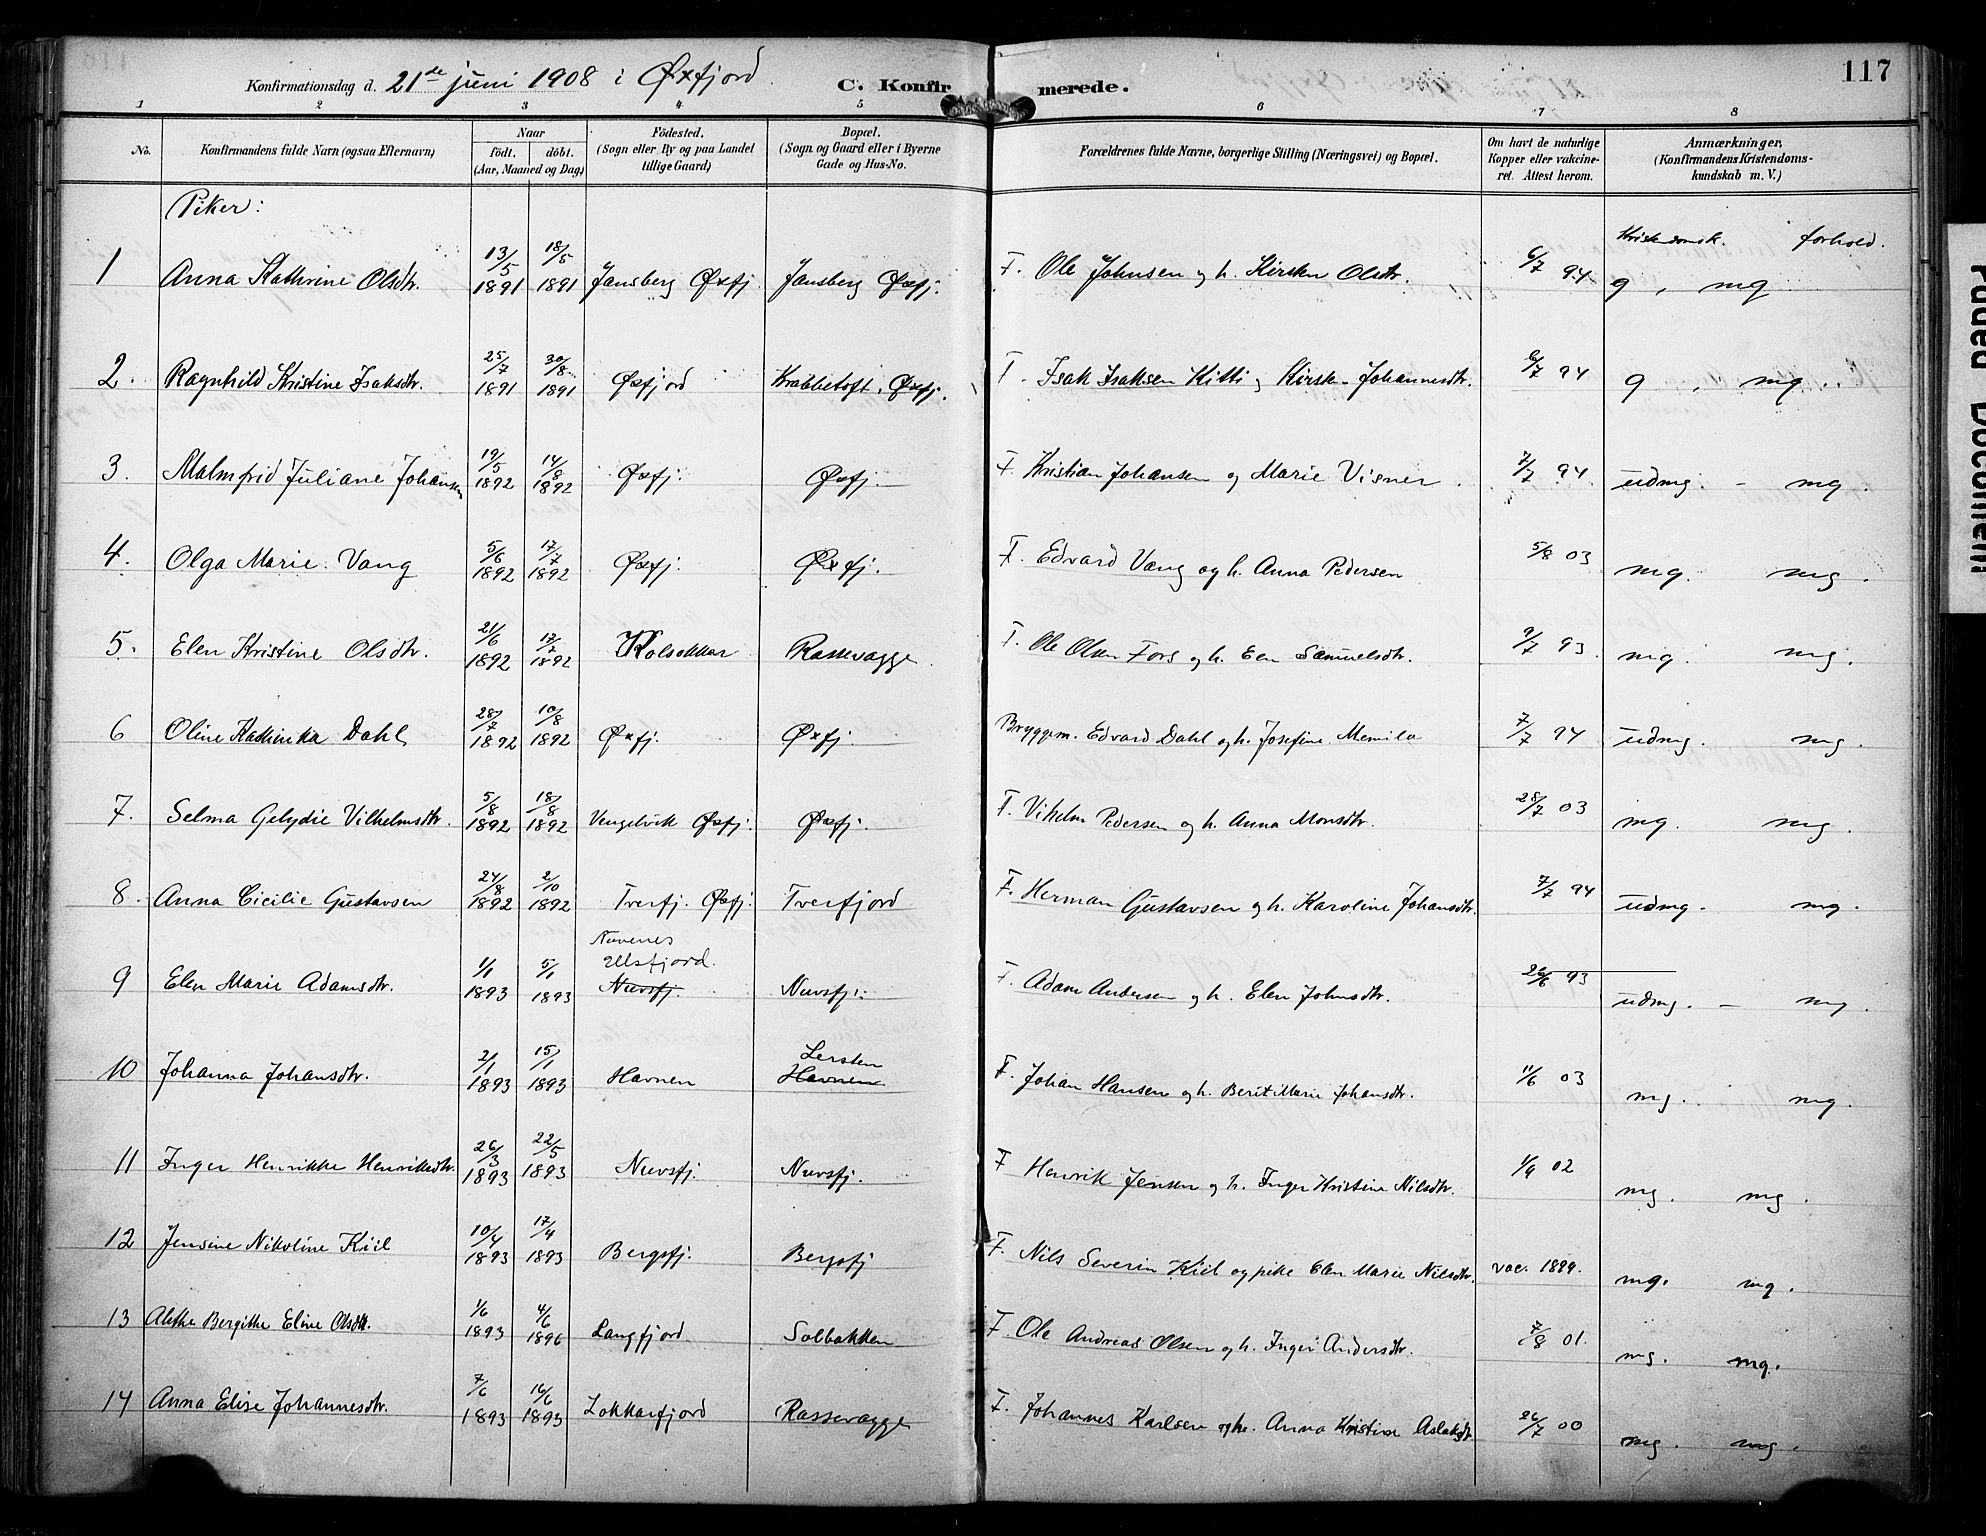 117
Konfirmationsdag d. 21de juni 1908 i Øxfjord C. Konfirmerede.
1 2 3 4 5 6 7 8
No.
Konfirmandens fulde Navn (ogsaa Efternavn)
Naar
födt. döbt.
(Aar, Maaned og Dag)
Födested.
(Sogn eller By og paa Landet
tillige Gaard)
Bopæl.
(Sogn og Gaard eller i Byerne
Gade og Hus-No.
Forældrenes fulde Navne, borgerlige Stilling (Næringsvei) og Bopæl.
Om havt de naturlige
Kopper eller vakcine-
ret. Attest herom.
Anmærkninger,
(Konfirmandens Kristendoms-
kundskab m. V.)
Piker:
Kristendomsk. forhold.
1 Anna Kathrine Olsdtr. 13/5 1891 18/5 1891 Jansberg Øxfj. Jansberg Øxfj. F. Ole Johnsen og h. Kirsten Olsdtr. 6/7 94 g, mg
2. Ragnhild Kristine Isaksdtr. 25/7 1891 30/8 1891 Øxfjord Krabbetoft, Øxfj. F. Isak Isaksen Kitti og Kirst. Johannesdtr. 6/7 94 g, mg.
3. Malmfrid Juliane Johansen 19/5 1892 14/8 1892 Øxfj. Øxfj. F. Kristian Johansen og Marie Visner. 7/7 94 udmg. - mg.
4. Olga Marie Vang 5/6 1892 17/7 1892 Øxfj. Øxfj. F. Edvard Vang og h. Anna Pedersen 5/8 03 mg. mg.
5. Elen Kristine Olsdtr. 21/6 1892 17/7 1892 Kolsokkar Rassevagge F. Ole Olsen Fors og h. Elen Samuelsdtr. 9/7 93 mg. mg.
6 Oline Kathinka Dahl 28/7 1892 10/8 1892 Øxfj. Øxfj. Bryggem. Edvard Dahl og h. Josefine 7/7 94 udmg. mg.
7. Selma Gelydie Vilhelmsdtr. 5/8 1892 18/8 1892 Vengelvik Øxfj. Øxfj. F. Vihelm Pedersen og h. Anna Monsdtr. 28/7 03 mg. mg.
8. Anna Cicilie Gustavsen 24/8 1892 2/10 1892 Tverfj. Øxfj. Tverfjord F. Herman Gustavsen og h. Karoline Johansdtr. 7/7 94 udmg. mg.
Nuvenes
Ulsfjord.
9 Elen Marie Adamsdtr. 1/1 1893 5/1 1893 Nuvsfj. Nuvsfj. F. Adam Andersen og h. Elen Johnsdtr. 26/6 93 udmg. - mg.
Lersten
10 Johanna Johansdtr. 2/1 1893 15/1 1893 Havnen Havnen F. Johan Hansen og h. Berit Marie Johansdtr. 11/6 03 mg. mg.
11 Inger Henrikke Henriksdtr. 26/3 1893 22/5 1893 Nuvsfj. Nuvsfj. F Henrik Jensen og h. Inger Kristine Nilsdtr. 1/9 02 mg. mg.
12 Jensine Nikoline Kiil 10/4 1893 17/4 1893 Bergsfj. Bergsfj F. Nils Severin Kiil og pike Elen Marie Nilsdtr. vac. 1899. mg. mg.
13 Alethe Bergitte Eline Olsdtr. 1/6 1893 4/6 1896 Langfjord Solbakken F. Ole Andreas Olsen og h. Inger Andersdtr. 7/8 01. mg. mg.
14 Anna Elise Johannesdtr. 7/6 1893 16/6 1893 Lokkarfjord Rassevagge F. Johannes Karlsen og h. Anna Kristine Aslaksdtr. 26/7 00 mg. mg.